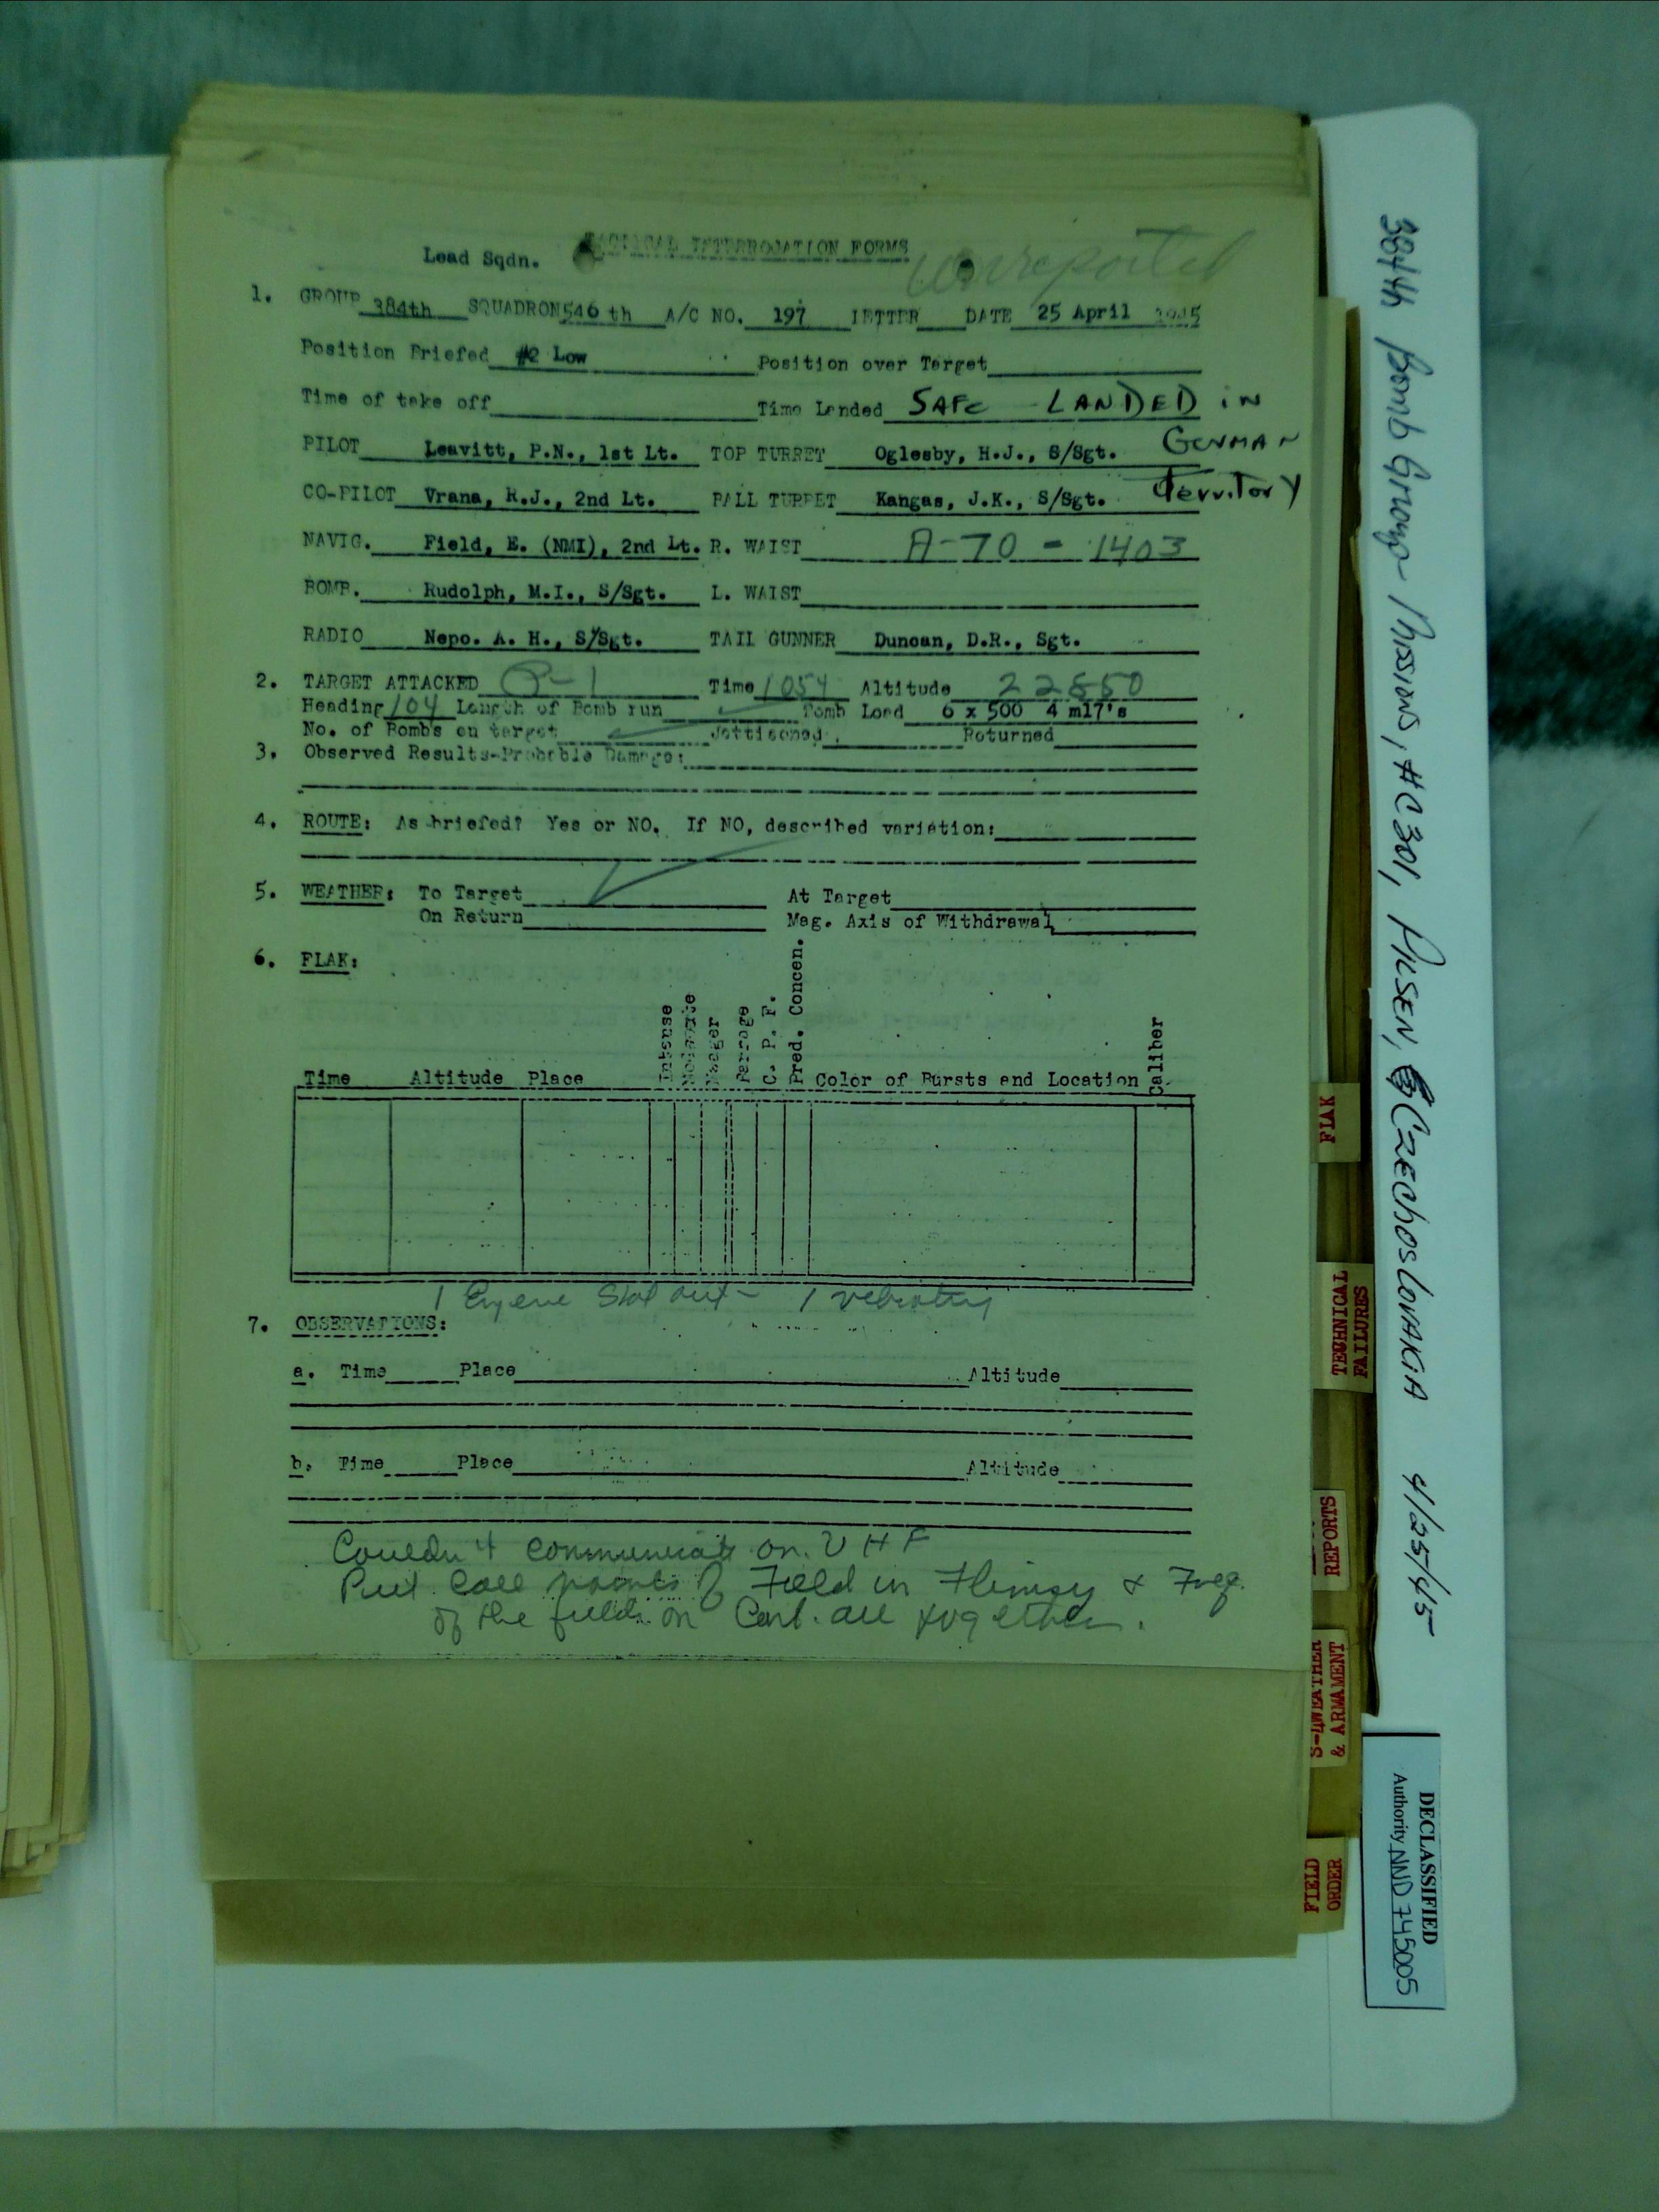 Lead Sqdn. TACTICAL INTERROGATION FORMS
1. GROUP 384th SQUADRON 546 th A/C NO. 197 LETTER DATE 25 April 1945
Position Briefed #2 Low Position over Target
Time of take off Time Landed SAFE LANDED in
German
Territory
PILOT Leavitt, P.N., 1st Lt. TOP TURRET Oglesby, H.J., S/Sgt.
CO-PILOT Vrana, R.J., 2nd Lt. BALL TURRET Kangas, J.K., S/Sgt.
NAVIG. Field, E. (NMI), 2nd Lt. R. WAIST A-70 - 1403
BOMB. Rudolph, M.I., S/Sgt. L. WAIST
RADIO Nepo. A. H., S/Sgt. TAIL GUNNER Duncan, D.R., Sgt.
2. TARGET ATTACKED P-1 Time 1054 Altitude 22850
Heading 104 Length of Bomb run Bomb Load 6 x 500 4 m17's
No. of Bombs on target Jettisoned Returned
3. Observed Results-Probable Damage:
4. ROUTE: As briefed? Yes or NO. If NO, described variation:
5. WEATHER: To Target At Target
On Return Mag. Axis of Withdrawal
6. FLAK:
Time Altitude Place Intense Moderate Meager Barrage C. P. F. Pred. Concen. Color of Bursts and Location Caliber
1 Engene Shot out - 1 vebrating
7. OBSERVATIONS:
a. Time Place Altitude
b. Time Place Altitude
Couldn't communicate on VHF
Put Call names of Field in Flimsy & Freq.
of the fields on Card. all together.
384th Bomb Group Missions, #C301, PILSEN, CZECHOSLOVAKIA 4/25/45
FLAK
TECHNICAL
FAILURES
REPORTS
S-4WEATHER
& ARMAMENT
FIELD
ORDER
DECLASSIFIED
Authority NND 745005